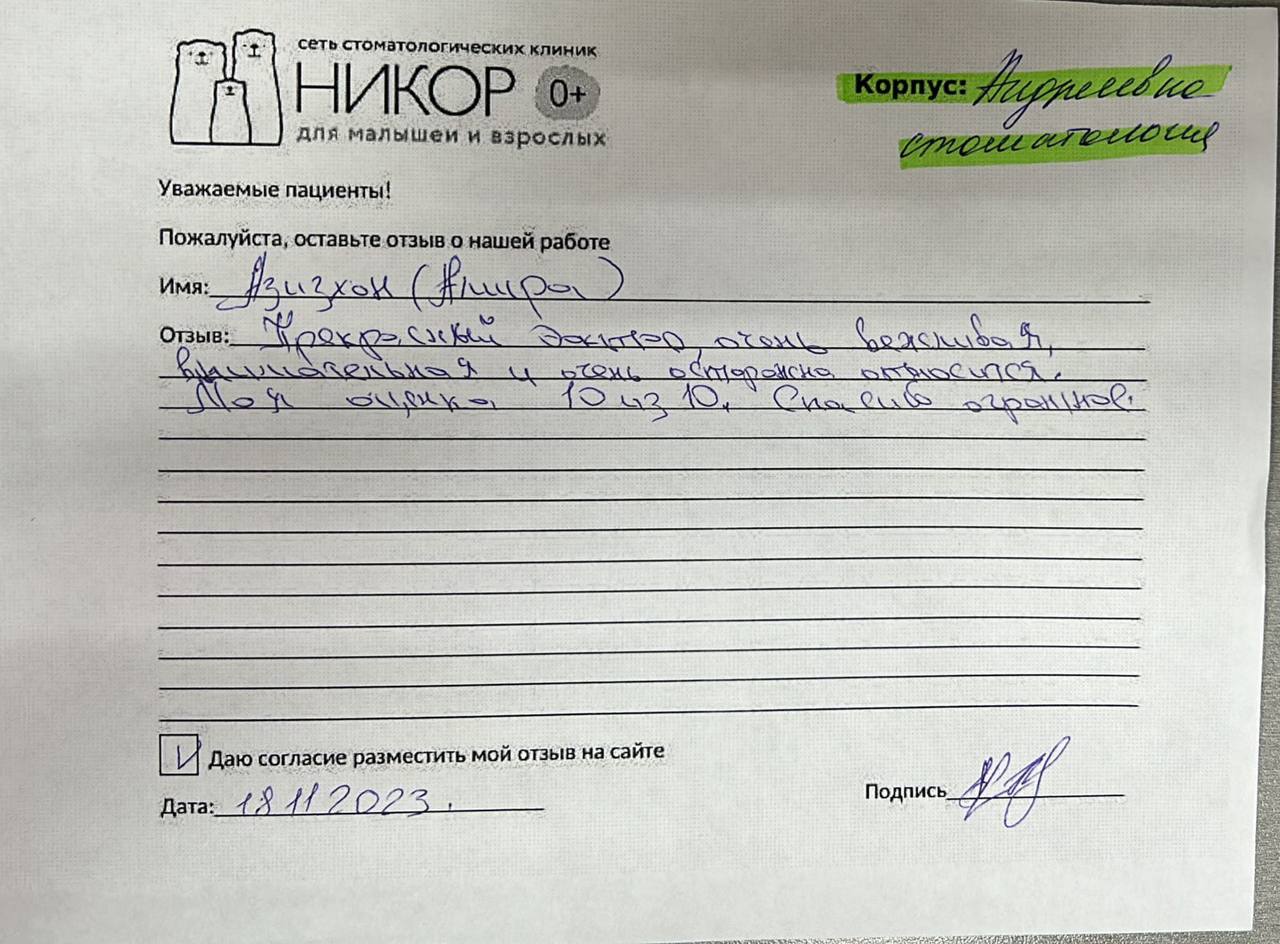 сеть стоматологических клиник
НИКОР 0+
для малышей и взрослых
Корпус: Андреевка
стоматология
Уважаемые пациенты!
Пожалуйста, оставьте отзыв о нашей работе
Имя: Азизхон (Амира)
Отзыв: Прекрасный доктор, очень вежливая,
внимательная и очень осторожно относится.
Моя оценка 10 из 10. Спасибо огромное.
Даю согласие разместить мой отзыв на сайте
Дата: 18 11 2023.
Подпись